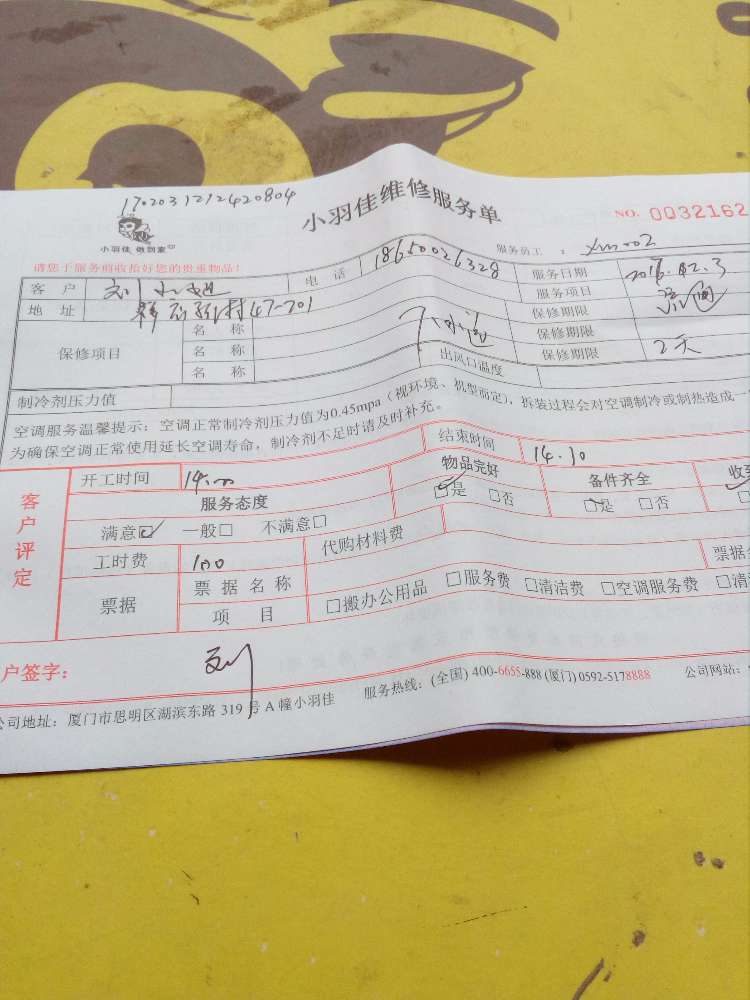 1702031212420804
小羽佳维修服务单
NO. 0032162
小羽佳 做到家
服务员工：xm02
请您于服务前收拾好您的贵重物品!
客 户 刘 电 话 18650026328 服务日期
地 址 村47-201 服务项目
保修项目 名 称 保修期限
名 称 保修期限
名 称 保修期限 2天
出风口温度
制冷剂压力值
空调服务温馨提示：空调正常制冷剂压力值为0.45mpa（视环境、机型而定），拆装过程会对空调制冷或制热造成一
为确保空调正常使用延长空调寿命，制冷剂不足时请及时补充。
客户评定
开工时间 14.00 结束时间 14.10
服务态度 物品完好 备件齐全 收
满意☑ 一般□ 不满意□ ☑是 □否 ☑是 □否
工时费 100 代购材料费
票据 票据名称 票据
项 目 □搬办公用品 □服务费 □清洁费 □空调服务费 □清
户签字： 刘
公司地址：厦门市思明区湖滨东路 319 号 A 幢小羽佳 服务热线：(全国) 400-6655-888 (厦门) 0592-5178888 公司网站：